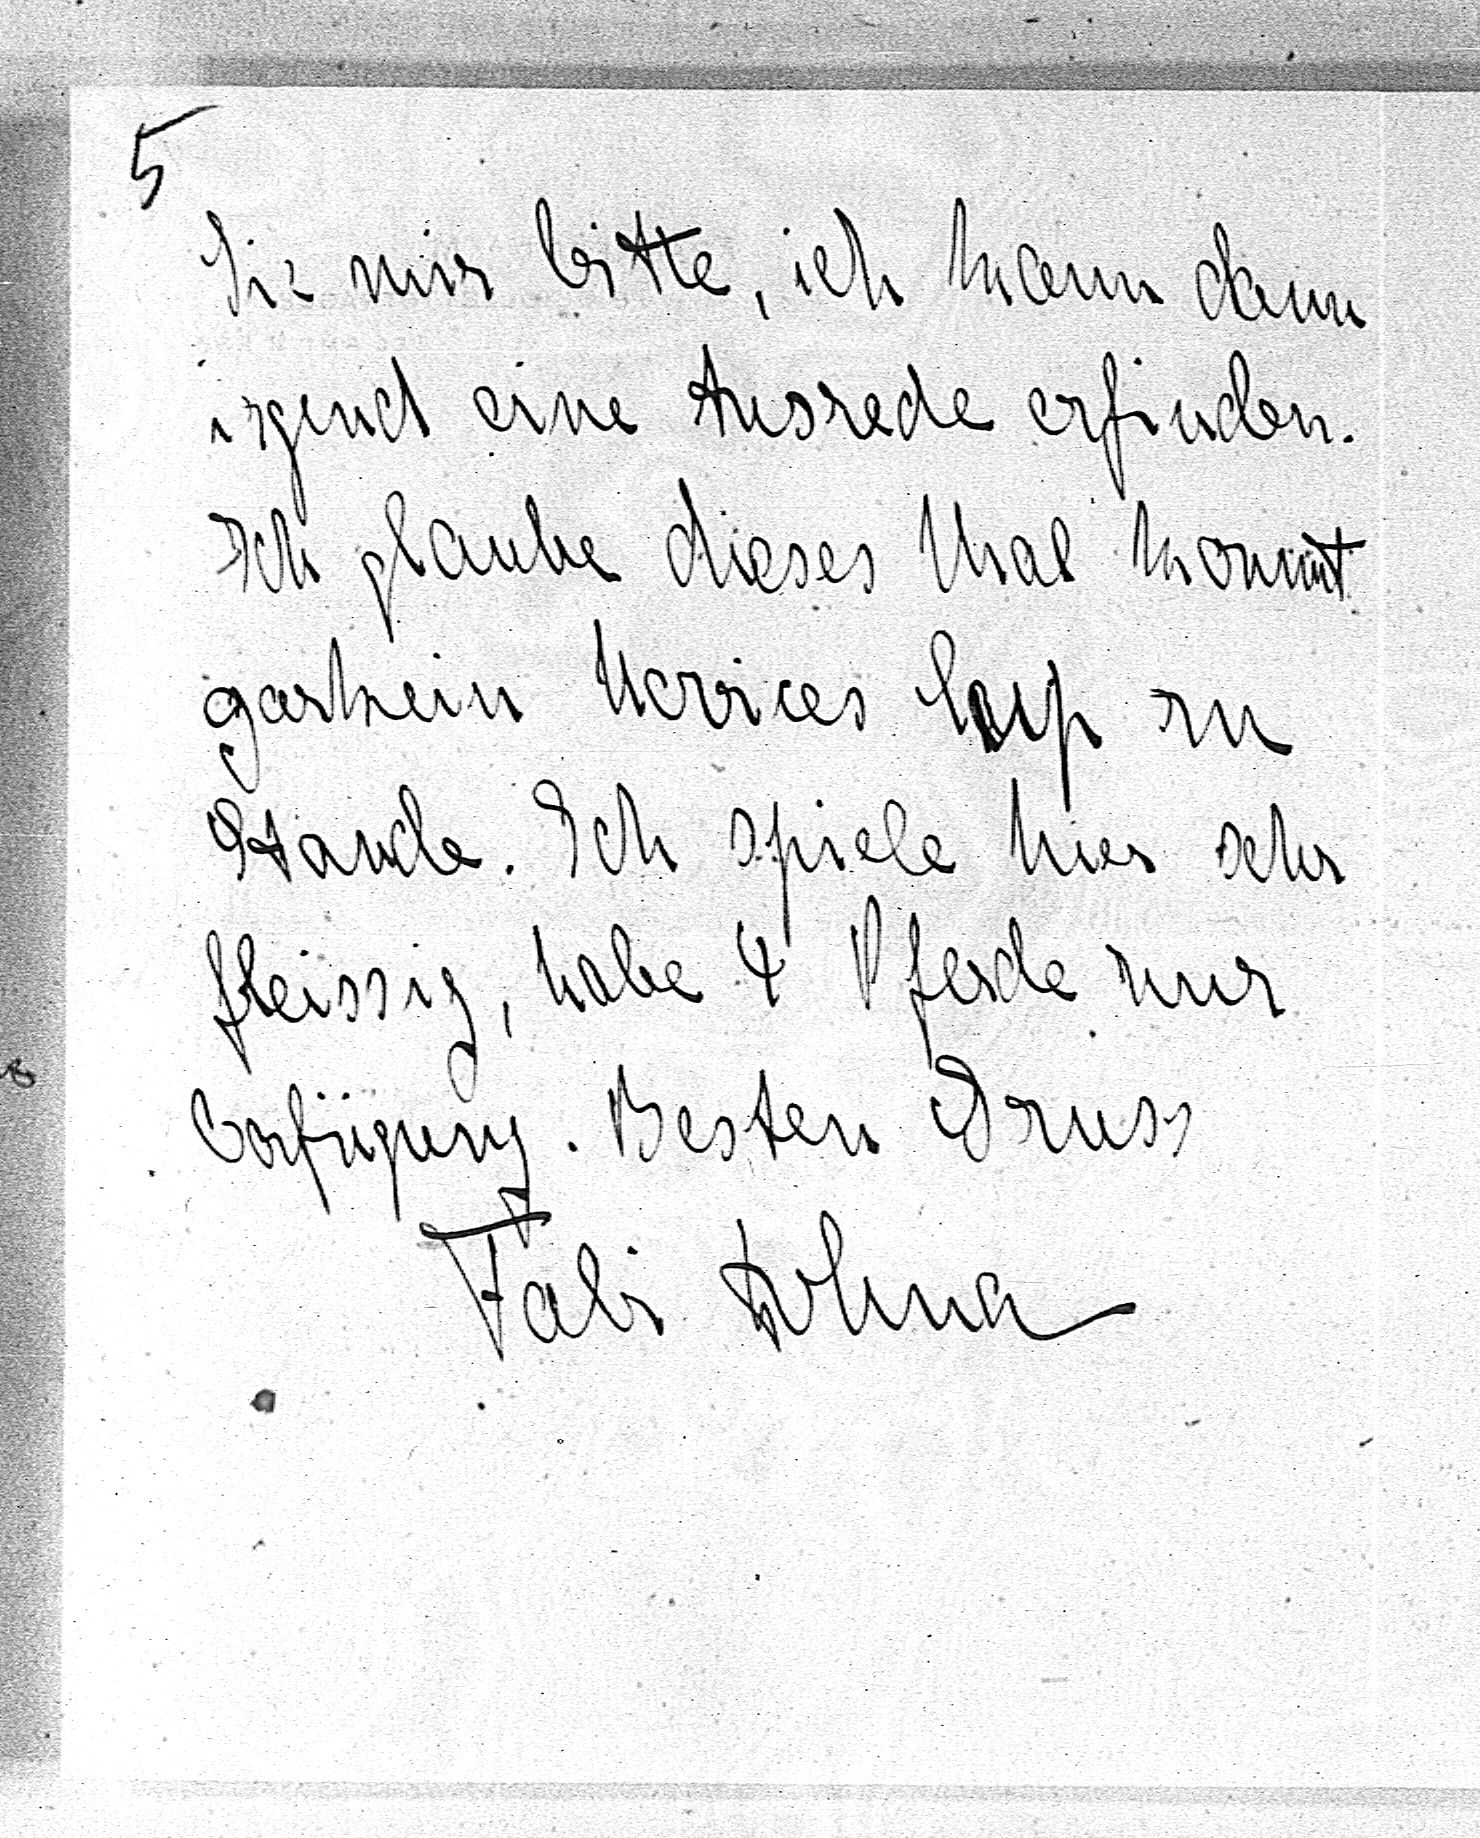 5
Sie mir bitte, ich kann dann
irgend eine Ausrede erfinden.
Ich glaube dieses Mal kommt
garkein Novices Cup zu
Stande. Ich spiele hier sehr
fleissig, habe 4 Pferde zur
Verfügung. Besten Gruss
Fabi Dohna